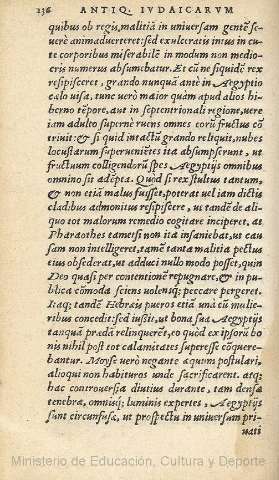 136 ANTIQ. IVDAICARVM
quibus ob regis, malitiā in universam gentē se-
verè animadverteret: sed exulceratis intus in cu-
te corporibus miserabilē in modum non medio-
cris numerus absumbatur. Et cū ne siquidē rex
resipisceret, grando nunquā antè in Aegyptio
cælo visa, tunc verò maior quàm apud alios hi-
berno tēpore, aut in septentrionali regione, vere
iam adulto supernè ruens omnes eorū fructus cō
triuit: & si quid intactū grando reliquit, nubes
locustarum supervenietes ita absumpserunt, ut
fructuum colligendorū spes Aegyptijs omnibus
omnino sit adēpta. Quòd si rex stultus tantum,
& non etiā malus fuisset, poterat vel iam dictis
cladibus admonitus resipiscere, ut tandē de ali-
quo tot malorum remedio cogitare inciperet, at
Pharaothes tametsi non ita insaniebat, ut cau
sam non intelligeret, tamē tanta malitia pectus
eius obsederat, ut adduci nullo modo posset, quin
Deo quasi per contentionē repugnare, & in pu-
blica cōmoda sciens volensq; peccare pergeret.
Itaq; tandē Hebræis pueros etiā unā cū mulie-
ribus concedit: sed iussit, ut bona sua Aegyptijs
tanquā prædā relinquerēt, eo quòd ex ipsorū bo
nis nihil post tot calamitates superesse cōquere-
bantur. Moyse verò negante æquum postulari,
alioqui non habituros unde sacrificarent. atq;
hac controversia diutius durante, tam densæ
tenebræ, omnisq; luminis expertes, Aegyptijs
sunt circunfusæ, ut prospectu in universum pri-
uati
Ministerio de Educación, Cultura y Deporte